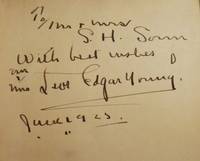 To Mr & Mrs
S. H. Sonn
With best wishes
Mr
Mrs Levi Edgar Young.
June 1925.
" "